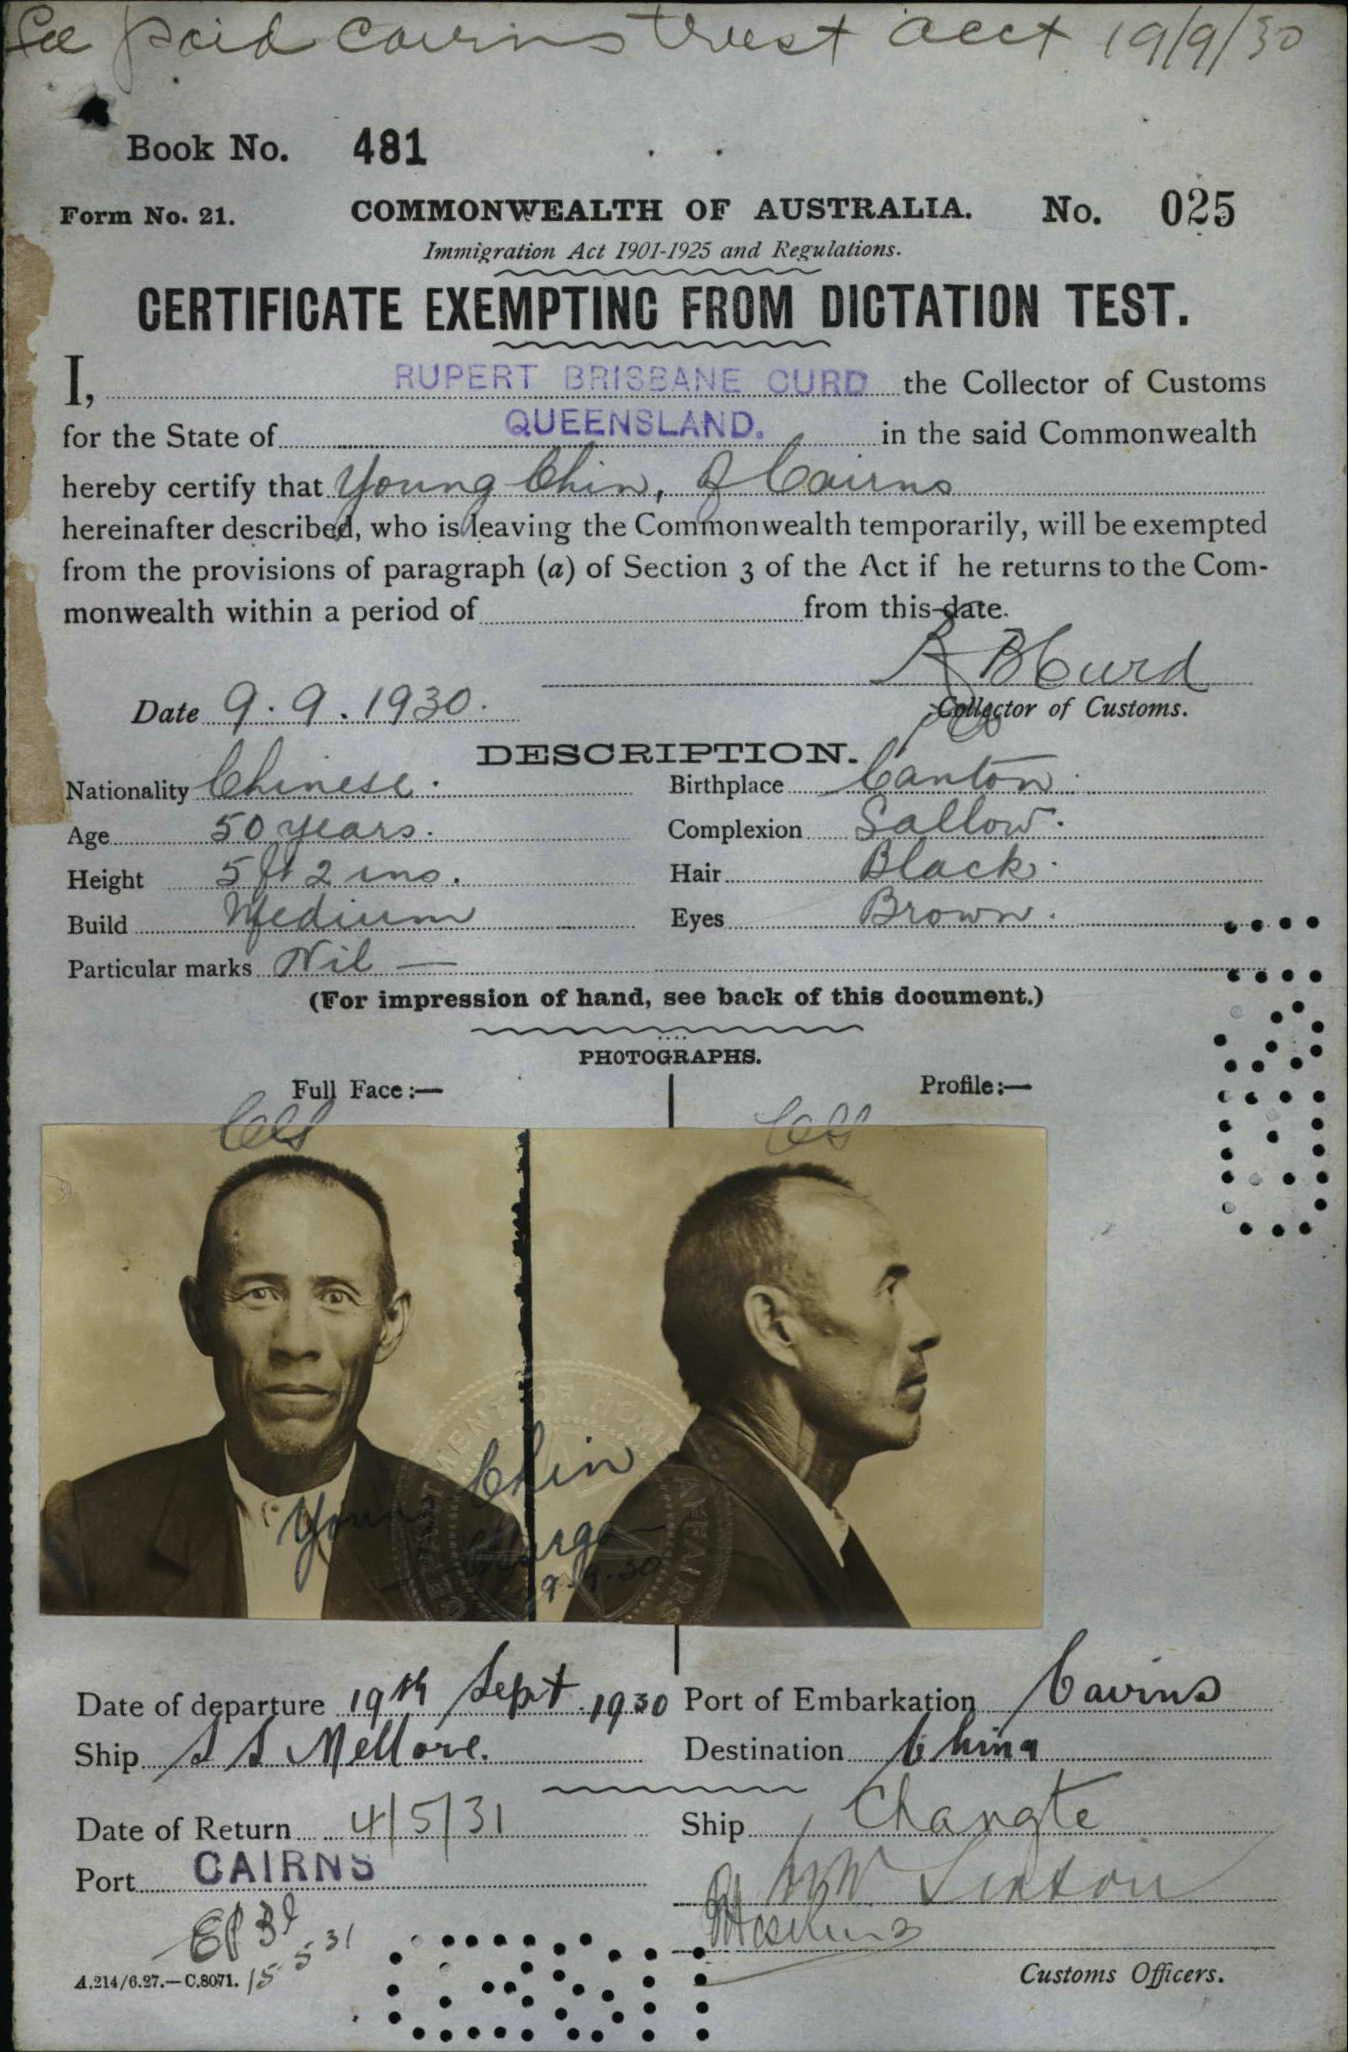 Fee paid Cairns trust acct 19/9/30
Book No. 481
Form No. 21. COMMONWEALTH OF AUSTRALIA. No. 025
Immigration Act 1901-1925 and Regulations.
CERTIFICATE EXEMPTING FROM DICTATION TEST.
I, RUPERT BRISBANE CURD the Collector of Customs
for the State of QUEENSLAND. in the said Commonwealth
hereby certify that Young Chin, of Cairns
hereinafter described, who is leaving the Commonwealth temporarily, will be exempted
from the provisions of paragraph (a) of Section 3 of the Act if he returns to the Com-
monwealth within a period of from this date.
R B Curd
Date 9.9.1930. Collector of Customs.
DESCRIPTION.
Nationality Chinese. Birthplace Canton.
Age 50 years. Complexion Sallow.
Height 5 ft 2 ins. Hair Black.
Build Medium Eyes Brown.
Particular marks Nil —
(For impression of hand, see back of this document.)
PHOTOGRAPHS.
Full Face:— Profile:—
Young Chin
9.9.30
DEPARTMENT OF HOME AFFAIRS
Date of departure 19th Sept. 1930 Port of Embarkation Cairns
Ship S S Mellore. Destination China
Date of Return 4/5/31 Ship Changte
Port CAIRNS
15 5 31
A.214/6.27.—C.8071. Customs Officers.